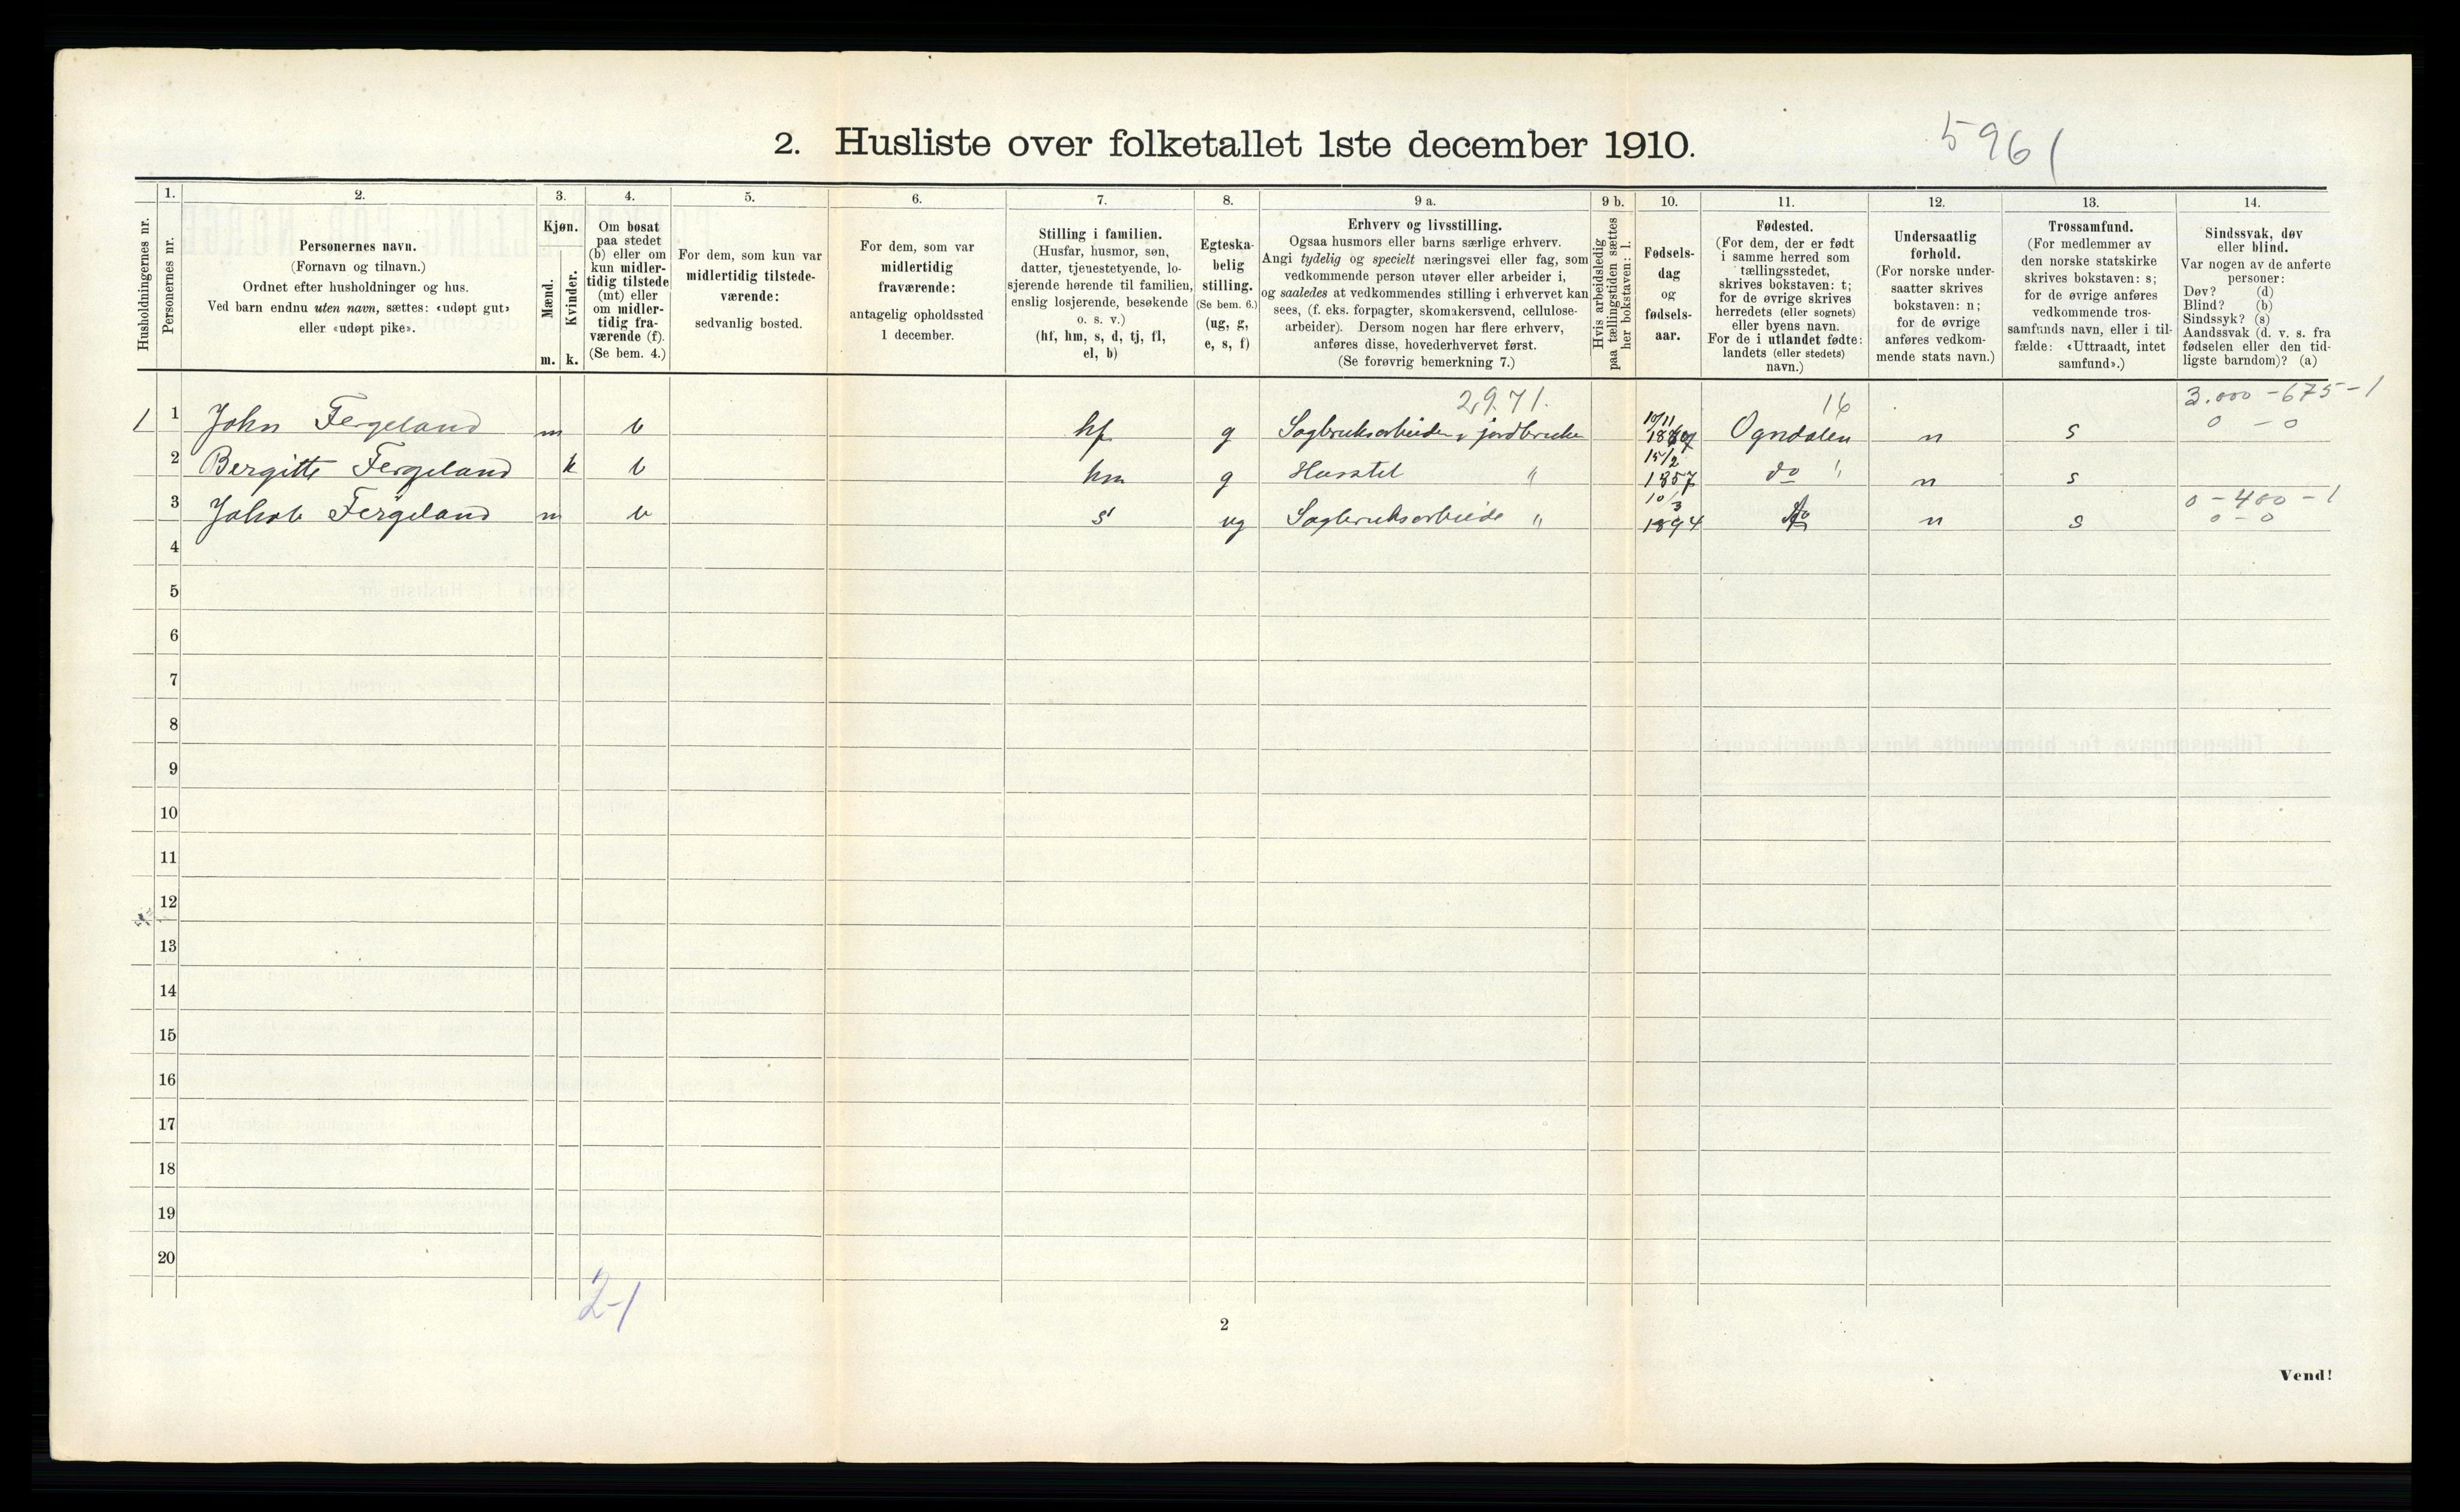 2. Husliste over folketallet 1ste december 1910.
5961
1. 2. 3. 4. 5. 6. 7. 8. 9 a. 9 b. 10. 11. 12. 13. 14.
Husholdningernes nr.
Personernes nr.
Personernes navn.
(Fornavn og tilnavn.)
Ordnet efter husholdninger og hus.
Ved barn endnu uten navn, sættes: «udøpt gut»
eller «udøpt pike».
Kjøn.
Mænd.
Kvinder.
m. k.
Om bosat
paa stedet
(b) eller om
kun midler-
tidig tilstede
(mt) eller
om midler-
tidig fra-
værende (f).
(Se bem. 4.)
For dem, som kun var
midlertidig tilstede-
værende:
sedvanlig bosted.
For dem, som var
midlertidig
fraværende:
antagelig opholdssted
1 december.
Stilling i familien.
(Husfar, husmor, søn,
datter, tjenestetyende, lo-
sjerende hørende til familien,
enslig losjerende, besøkende
o. s. v.)
(hf, hm, s, d, tj, fl,
el, b)
Egteska-
belig
stilling.
(Se bem. 6.)
(ug, g,
e, s, f)
Erhverv og livsstilling.
Ogsaa husmors eller barns særlige erhverv.
Angi tydelig og specielt næringsvei eller fag, som
vedkommende person utøver eller arbeider i,
og saaledes at vedkommendes stilling i erhvervet kan
sees, (f. eks. forpagter, skomakersvend, cellulose-
arbeider). Dersom nogen har flere erhverv,
anføres disse, hovederhvervet først.
(Se forøvrig bemerkning 7.)
Hvis arbeidsledig
paa tællingstiden sættes
her bokstaven: l.
Fødsels-
dag
og
fødsels-
aar.
Fødested.
(For dem, der er født
i samme herred som
tællingsstedet,
skrives bokstaven: t;
for de øvrige skrives
herredets (eller sognets)
eller byens navn.
For de i utlandet fødte:
landets (eller stedets)
navn.)
Undersaatlig
forhold.
(For norske under-
saatter skrives
bokstaven: n;
for de øvrige
anføres vedkom-
mende stats navn.)
Trossamfund.
(For medlemmer av
den norske statskirke
skrives bokstaven: s;
for de øvrige anføres
vedkommende tros-
samfunds navn, eller i til-
fælde: «Uttraadt, intet
samfund».)
Sindssvak, døv
eller blind.
Var nogen av de anførte
personer:
Døv? (d)
Blind? (b)
Sindssyk? (s)
Aandssvak (d. v. s. fra
fødselen eller den tid-
ligste barndom)? (a)
2971. 16 3.000 - 675 - 1
1 1 John Fergeland m b hf g Sagbruksarbeider, jordbruker 10/11 Ogndalen n s 0 - 0
2 Bergitte Fergeland k b hm g Husstel " 15/2 1857 do " n s
0 - 400 - 1
3 Jakob Fergeland m b s ug Sagbruksarbeide " 10/3 1894 do n s 0 - 0
4
5
6
7
8
9
10
11
12
13
14
15
16
17
18
19
20
2-1
2
Vend!